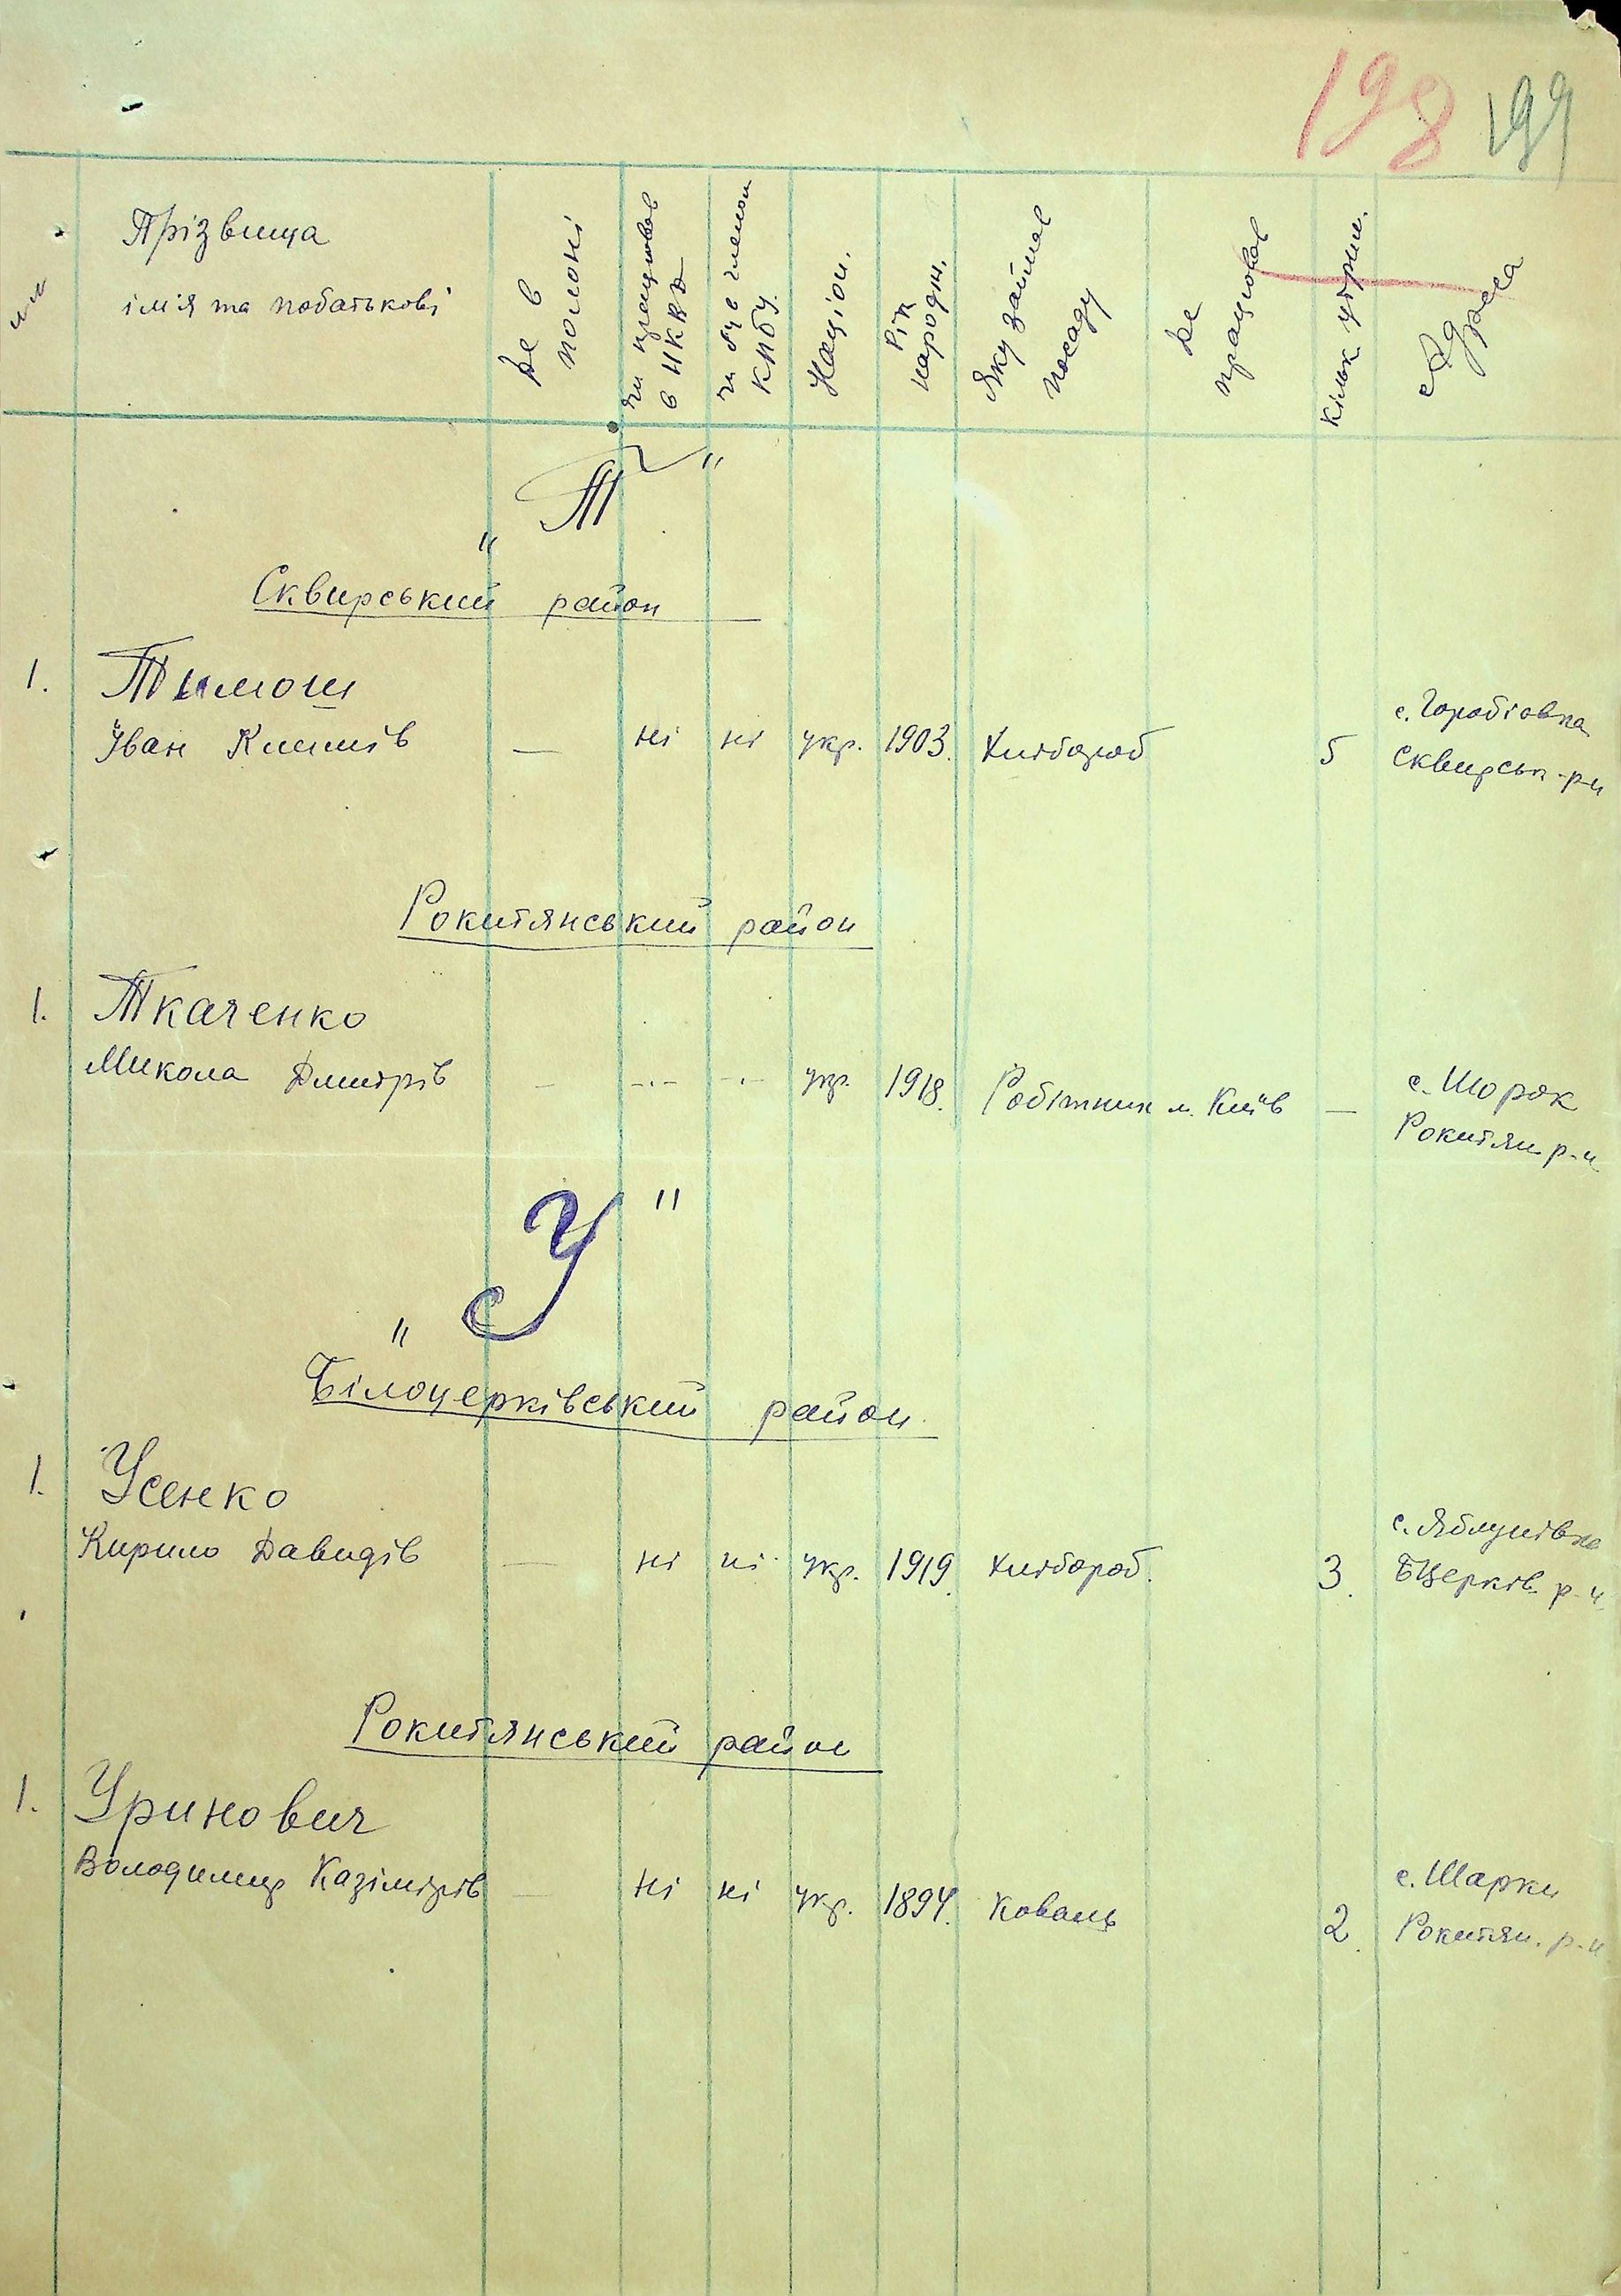 198 199
Прізвища
ім'я та побатькові
Де в
полоні
чи працював
в НКВД
чи був членом
КПбУ.
Націон.
Рік
народж.
Яку займав
посаду
Де
працював
Кільк. утрим.
Адреса
„Т"
Сквирський район
1. Тимош
Іван Климів — ні ні укр. 1903. Хлібороб 5 с. Горобіовка
Сквирськ. р-н
Рокитянський район
1. Ткаченко
Микола Дмитрів — -.- -.- укр. 1918. Робітник м. Київ — с.
Рокитян. р-н
„У"
Білоцерківський район
1. Усенко
Кирило Давидів — ні ні укр. 1919. Хлібороб. 3. с. Яблунівка
БЦерків. р-н
Рокитянський район
1. Уринович
Володимир Казімірів — ні ні укр. 1894. Коваль 2. с. Шарки
Рокитян. р-н